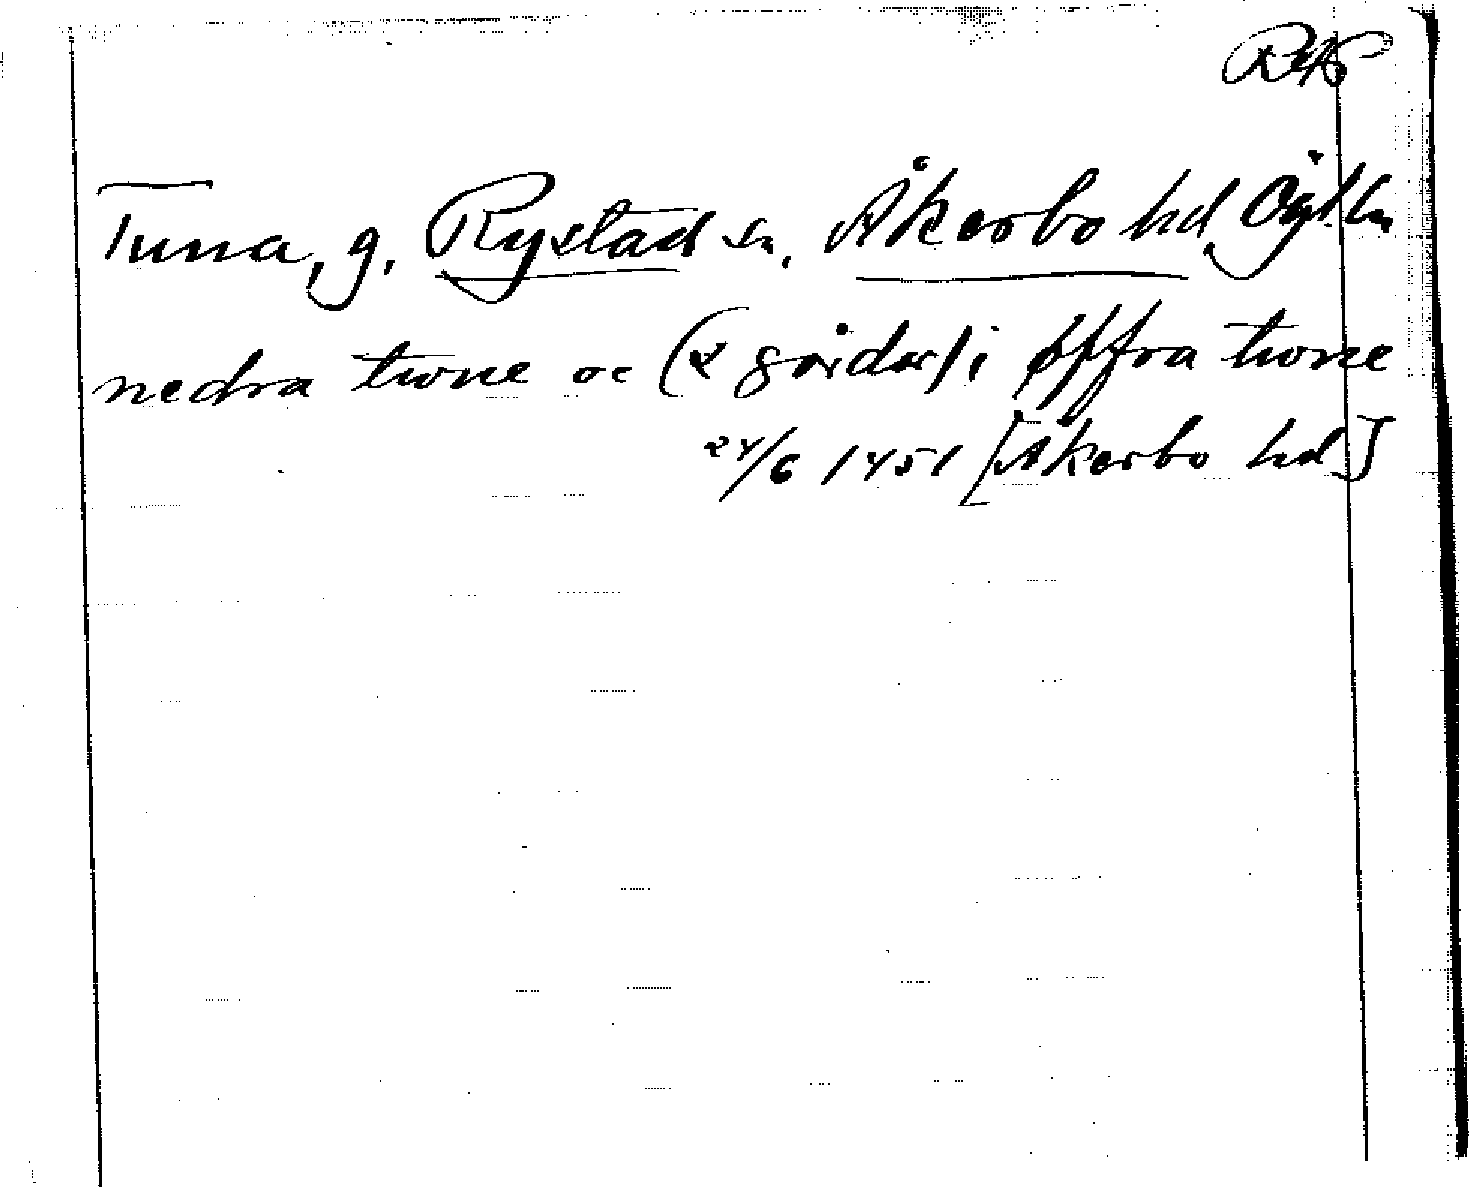 Tuna, g. Rystad sn, Åkerbo hd, Ögtln
nedra twne oc (2 gårdar) i øffra twne
24/6 1451 [Åkerbo hd]